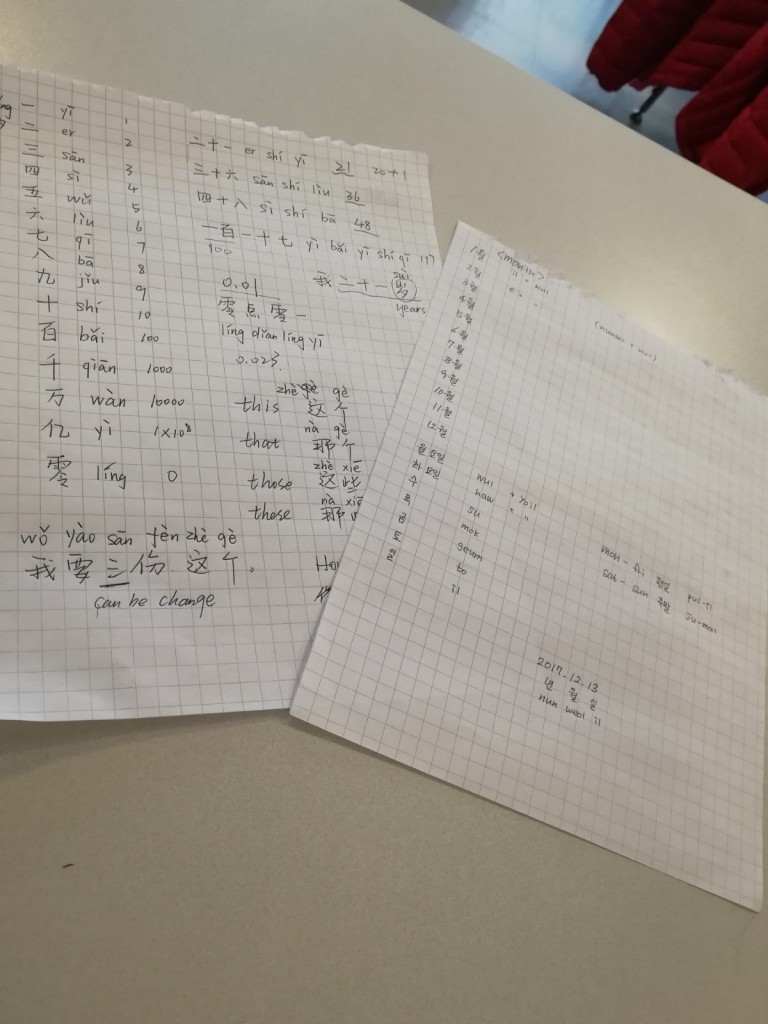 一 yī 1
二 er 2
三 sān 3
四 sì 4
五 wǔ 5
六 lìu 6
七 qī 7
八 bā 8
九 jǐu 9
十 shí 10
百 bǎi 100
千 qiān 1000
万 wàn 10000
亿 yì 1×10⁸
零 líng 0
二十一 er shí yī 21 20+1
三十六 sān shí lìu 36
四十八 sì shí bā 48
一百一十七 yì bǎi yī shí qī 117
100
suì
我 二十一 岁
years
0.01
零点零一
líng diǎn líng yī
0.023
zhè gè
this 这个
nà gè
that 那个
zhè xiē
those 这些
nà xiē
these 那
wǒ yào sān fèn zhè gè
我要三份这个。
can be change
<month>
1월
2월
3월
4월
5월
6월
7월
8월
9월
10월
11월
12월
(number + wol)
월요일 wol + yoil
화요일 haw + "
수 su
목 mok
금 geum
토 to
일 il
mon - fri 평일
sat - sun 주말 Ju-mal
2017.12.13
년 월 일
nun weol il